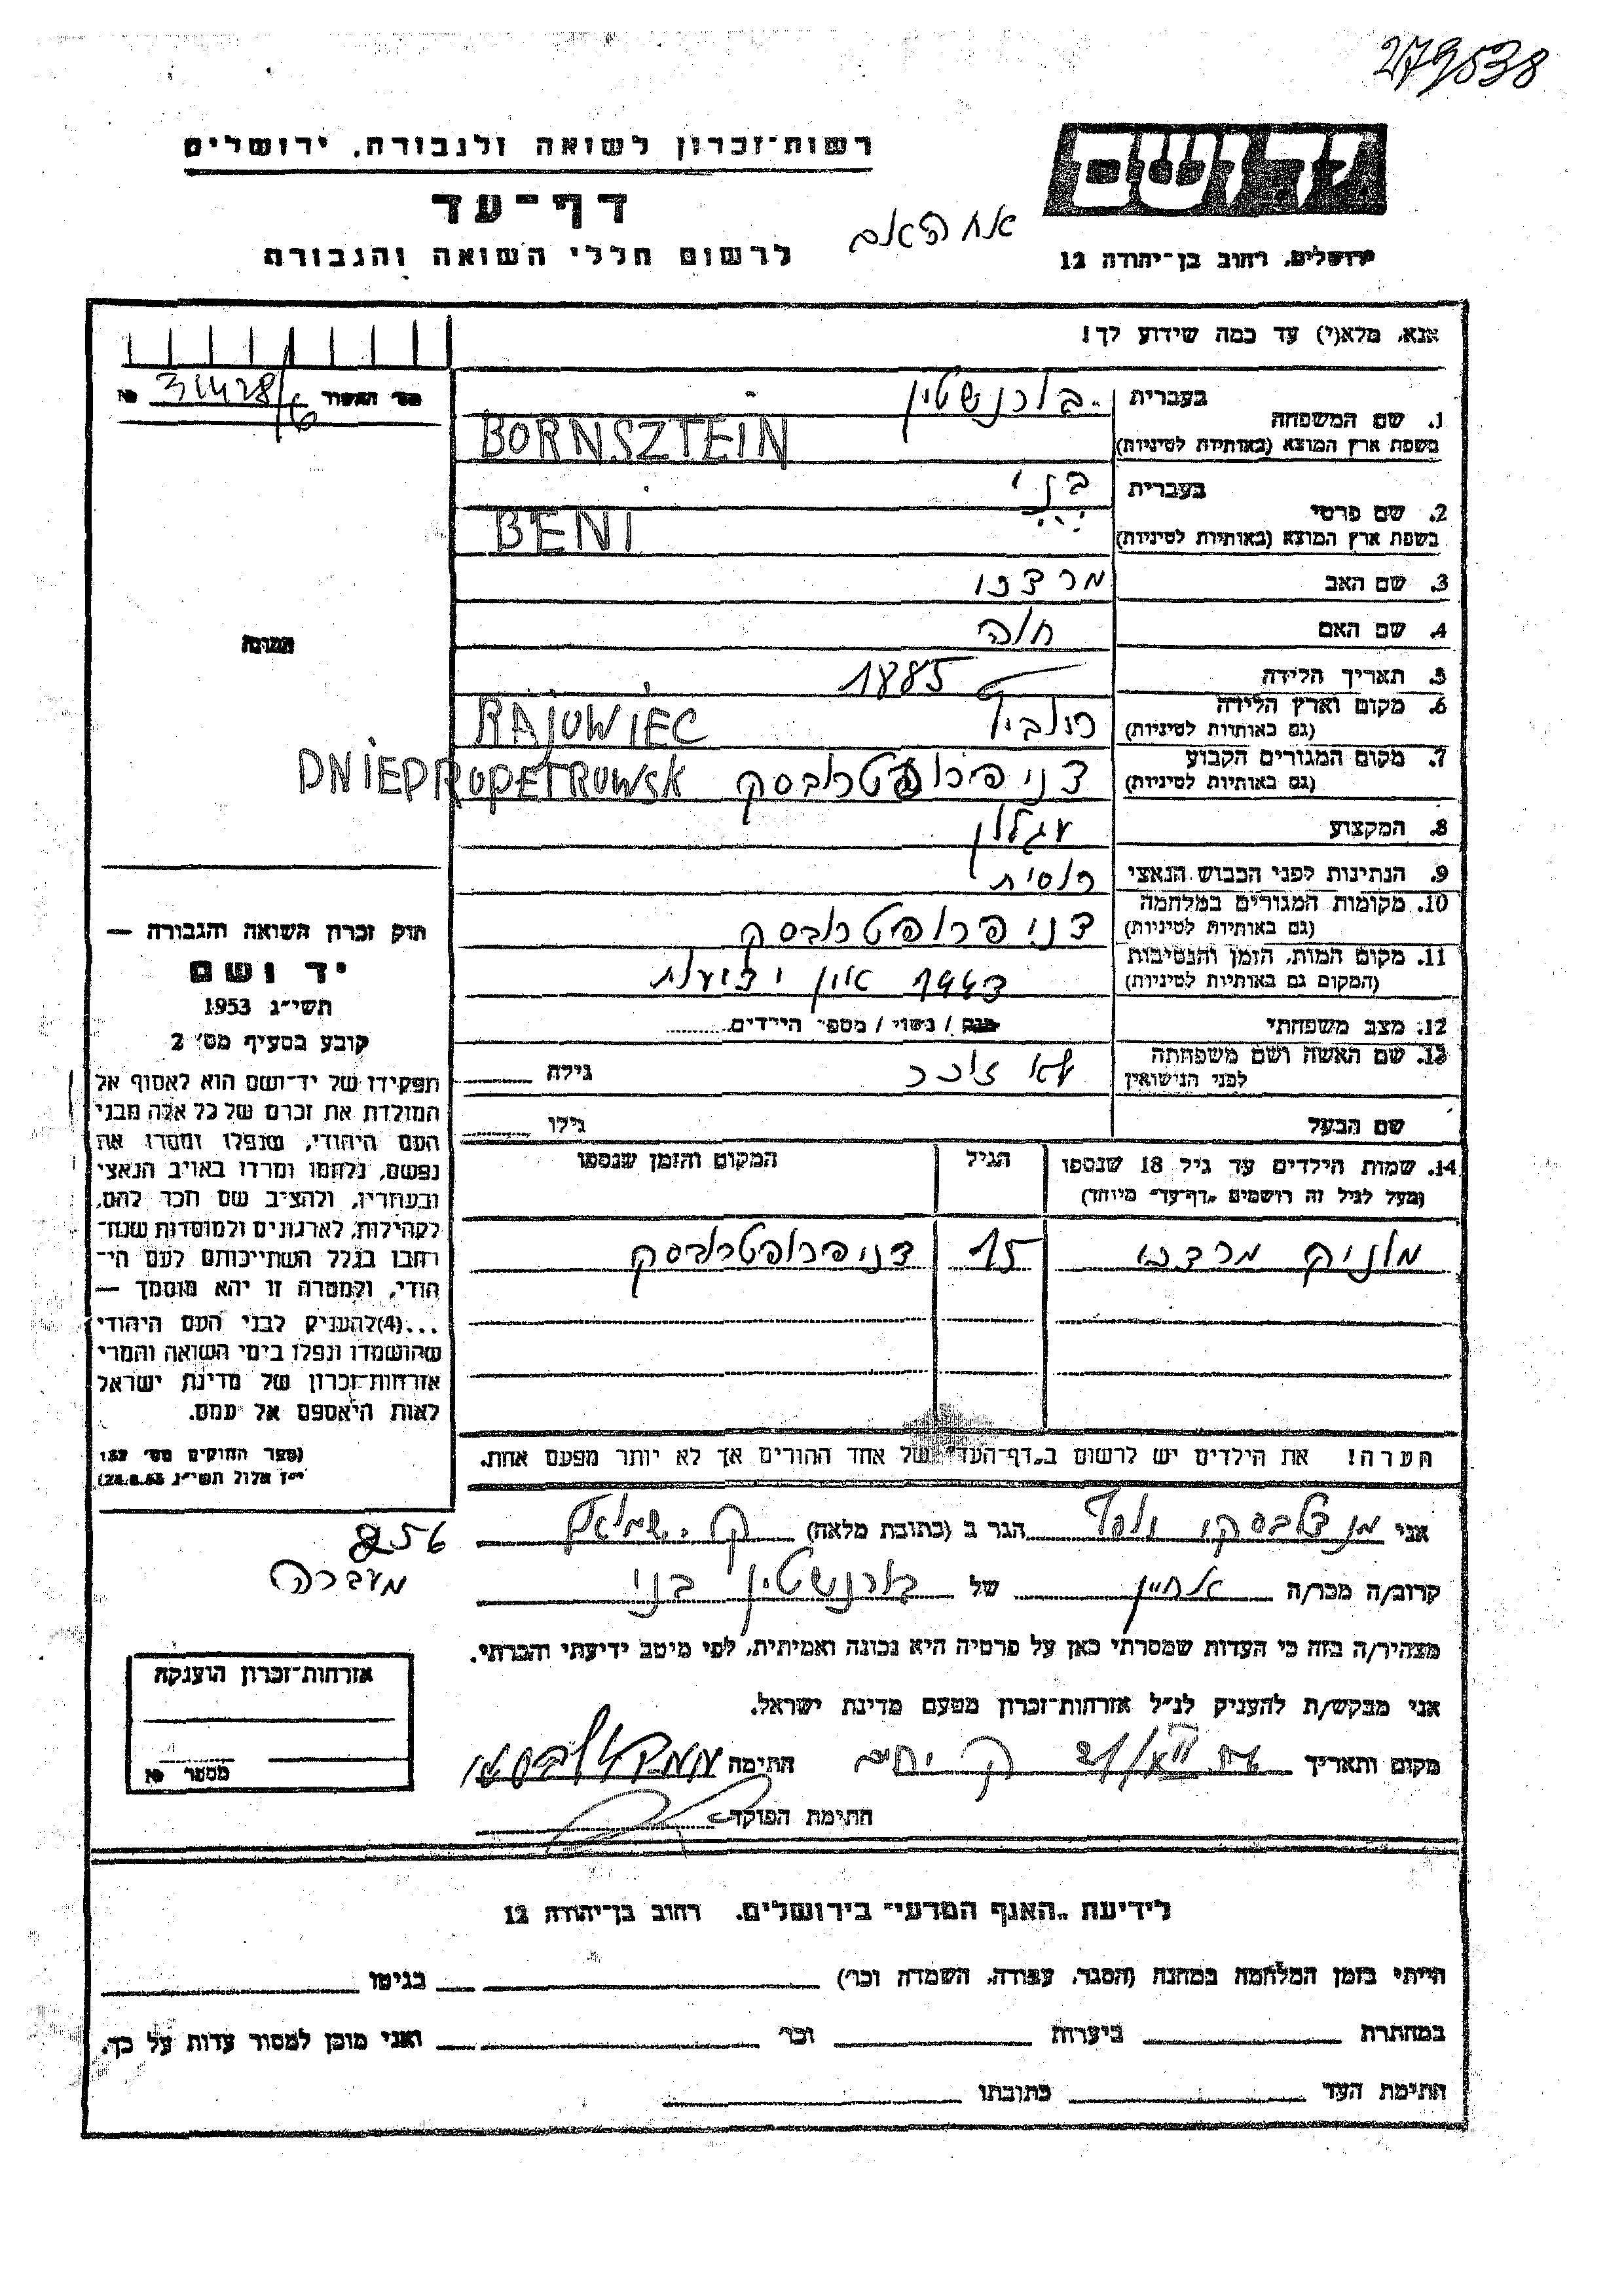 279538
רשות-זכרון לשואה ולגבורה, ירושלים
יד ושם
דף-עד
אח האב
לרשום חללי השואה והגבורה
ירושלים, רחוב בן-יהודה 12
אנא, מלא(י) עד כמה שידוע לך!
מס' האשור 31428/6 №
1. שם המשפחה בעברית בורנשטין
בשפת ארץ המוצא (באותיות לטיניות) BORNSZTEIN
2. שם פרטי בעברית בני
בשפת ארץ המוצא (באותיות לטיניות) BENI
3. שם האב מרדכי
4. שם האם חוה
5. תאריך הלידה 1885
6. מקום וארץ הלידה
(גם באותיות לטיניות) RAJOWIEC
7. מקום המגורים הקבוע
(גם באותיות לטיניות) דניפרופטרובסק DNIEPROPETROWSK
8. המקצוע עגלון
9. הנתינות לפני הכבוש הנאצי רוסית
10. מקומות המגורים במלחמה
(גם באותיות לטיניות) דניפרופטרובסק
11. מקום המות, הזמן והנסיבות
(המקום גם באותיות לטיניות) אין ידיעות
12. מצב משפחתי רווק / נשוי / מספר הילדים
13. שם האשה ושם משפחתה
לפני הנישואין לא זוכר גילה
שם הבעל גילו
14. שמות הילדים עד גיל 18 שנספו הגיל המקום והזמן שנספו
(מעל לגיל זה רושמים "דף-עד" מיוחד)
מוניק מרדכי 15 דניפרופטרובסק
הערה! את הילדים יש לרשום ב"דף-העד" של אחד ההורים אך לא יותר מפעם אחת.
תמונה
חוק זכרון השואה והגבורה —
יד ושם
תשי"ג 1953
קובע בסעיף מס' 2
תפקידו של יד-ושם הוא לאסוף אל
המולדת את זכרם של כל אלה מבני
העם היהודי, שנפלו ומסרו את
נפשם, נלחמו ומרדו באויב הנאצי
ובעוזריו, ולהציב שם וזכר להם,
לקהילות, לארגונים ולמוסדות שנח-
רבו בגלל השתייכותם לעם הי-
הודי, ולמטרה זו יהא מוסמך —
...(4) להעניק לבני העם היהודי
שהושמדו ונפלו בימי השואה והמרי
אזרחות-זכרון של מדינת ישראל
לאות היאספם אל עמם.
(ספר החוקים מס' 132
י"ז אלול תשי"ג 28.8.53)
אני הגר ב (כתובת מלאה)
856
מעברה
קרוב/ה מכר/ה אחיין של בורנשטין בני
מצהיר/ה בזה כי העדות שמסרתי כאן על פרטיה היא נכונה ואמיתית, לפי מיטב ידיעתי והכרתי.
אני מבקש/ת להעניק לנ"ל אזרחות-זכרון מטעם מדינת ישראל.
מקום ותאריך חתימה
חתימת הפוקד
אזרחות-זכרון הוענקה
מספר №
לידיעת "האגף המדעי" בירושלים, רחוב בן-יהודה 12
הייתי בזמן המלחמה במחנה (הסגר, עבודה, השמדה וכו') בגיטו
במחתרת ביערות וכו' ואני מוכן למסור עדות על כך.
חתימת העד כתובתו